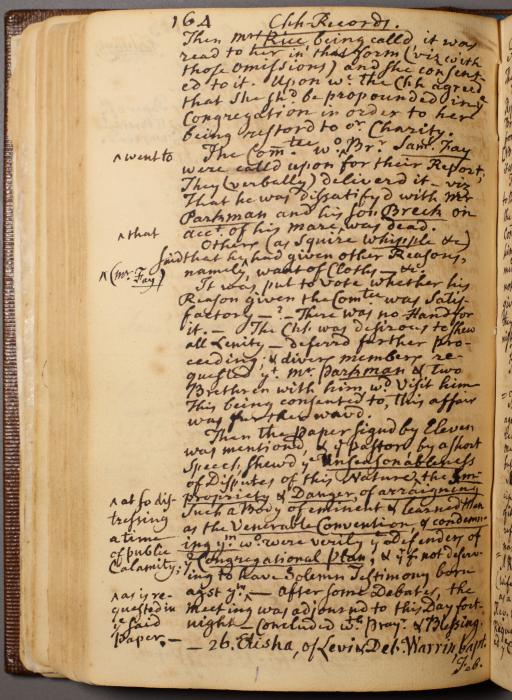 164 Chh Records.
Then mrs Rice being called it was
read to her in that form (viz with
those omissions) and she consent-
ed to it. Upon wc the Chh agreed
that She shd be propounded in ye
Congregation in order to her
being restord to or Charity.
^ went to The Comtee wo Br Saml. Fay
were called upon for their Report,
They (verbally) deliverd it - viz
That he was dissatisfyd with mr
Parkman and his son Breck on
acct of his mare, was dead.
^ that Others (as Squire whipple &c)
said that he had given other Reasons,
^ (mr. Fay) namely, want of Cloths - &c.
It was put to vote whether his
Reason given the Comtee was Satis-
factory - ? - There was no Hand for
it. - The Chh was desirous to shew
all Lenity - deferrd further pro-
ceeding; & divers members re-
quested yt. mr Parkman & two
Brethren with him wd Visit him
This being consented to, this affair
was further waivd.
Then the Paper signd by Eleven
was mentioned, & ye pastors by a short
Speech, shewd ye Unseasonableness
of Disputes of this Nature, the Im-
^ at so dis- propriety & Danger of arraigning
tressing Such a Body of eminent & learned Men
a time as the Venerable Convention, & condemn-
of public ing ym wo were verily ye Defenders of
Calamity; ye Congregational plan, & if not deserv-
ing to have Solemn Testimony born
^ as is re- agst ym ^ - after some Debates, the
quested in meeting was adjournd to this Day fort-
ye said night - Concluded wth Prayr & Blessing.
Paper. - - 26. Elisha, of Levi & Deb. Warrin, bapt.
Feb.